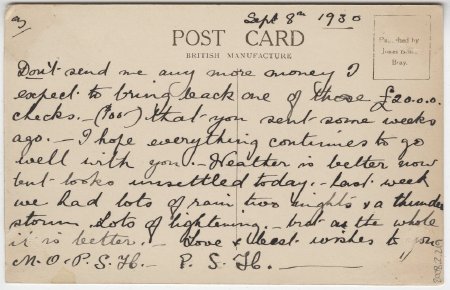 2)
Sept 8th 1930
POST CARD
BRITISH MANUFACTURE
Published by
Bray.
Don't send me any more money I
expect to bring back one of those £20.0.0
checks. – (too) that you sent some weeks
ago. – I hope everything continues to go
well with you. – Weather is better now
but looks unsettled today. – Last week
we had lots of rain two nights & a thunder
storm, lots of lightening. – but on the whole
it is better. – Love & best wishes to you
M. O. P. S. H. – P. S. H. –